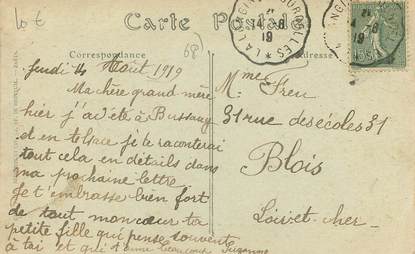 10 €
Carte Postale
68
Correspondance
Jeudi 14 Août 1919
Ma chère grand mère
hier j'ai été à Bussang
et en telsace je te raconterai
tout cela en détails dans
ma prochaine lettre
Je t'embrasse bien fort
de tout mon cœur ta
petite fille qui pense souvente
à tai et qui t'aime beaucoup Suzanne
Mme Freu
31 rue des écoles 31
Blois
Loir-et-cher
14 -8
19